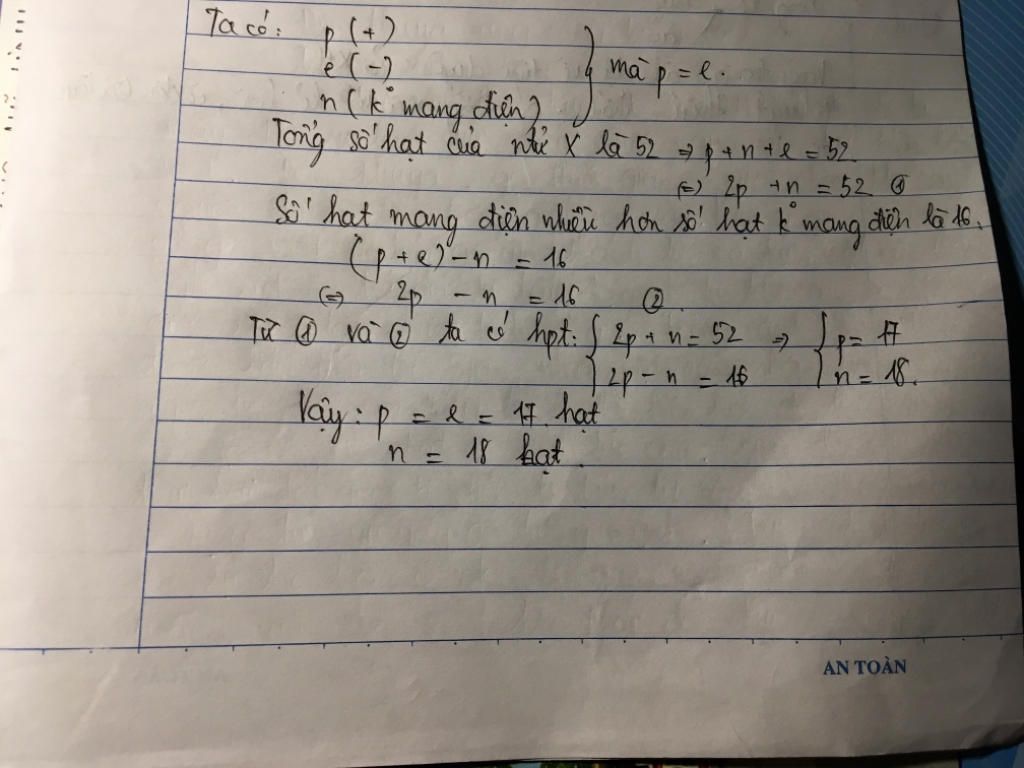 Ta có: p (+)
e (-) } mà p = e.
n (k° mang điện)
Tổng số hạt của ntử X là 52 ⇒ p + n + e = 52
(=) 2p + n = 52 ①
Số hạt mang điện nhiều hơn số hạt k° mang điện là 16.
(p + e) - n = 16
(=) 2p - n = 16 ②
Từ ① và ② ta có hpt: { 2p + n = 52 ⇒ { p = 17
2p - n = 16 n = 18.
Vậy: p = e = 17 hạt
n = 18 hạt.
AN TOÀN